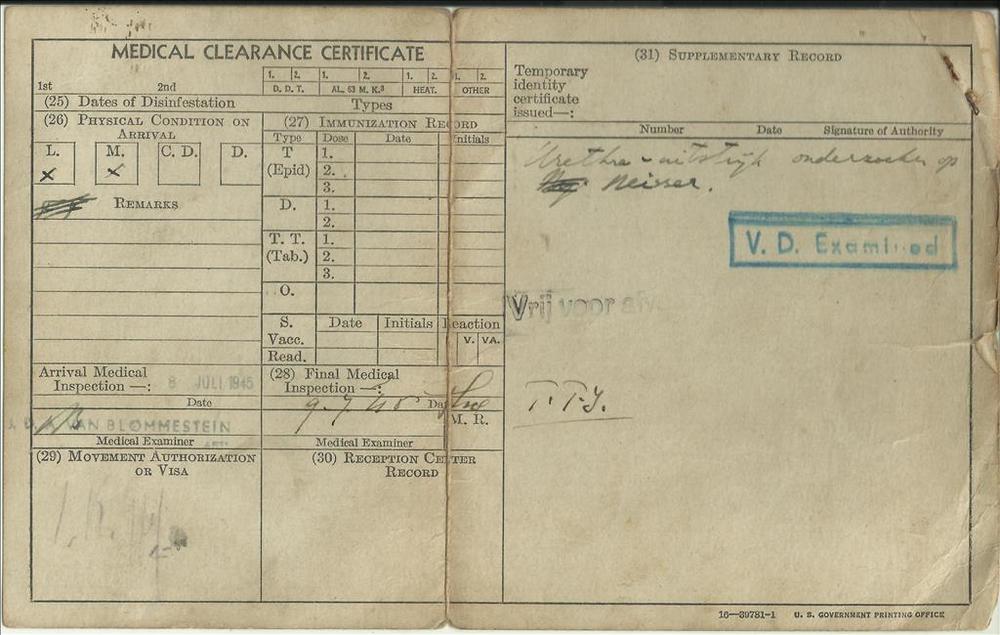 MEDICAL CLEARANCE CERTIFICATE
1st 2nd
1. 2. 1. 2. 1. 2. 1. 2.
D. D. T. AL. 63 M. K.³ HEAT. OTHER
(25) Dates of Disinfestation Types
(26) PHYSICAL CONDITION ON ARRIVAL
L. M. C. D. D.
x x
REMARKS
(27) IMMUNIZATION RECORD
Type Dose Date Initials
T 1.
(Epid) 2.
3.
D. 1.
2.
T. T. 1.
(Tab.) 2.
3.
O.
S. Date Initials Reaction
Vacc. V. VA.
Read.
Arrival Medical
Inspection —: 8 JULI 1945
Date
VAN BLOMMESTEIN
Medical Examiner
(28) Final Medical
Inspection —:
9.7.45 Date
M. R.
Medical Examiner
(29) MOVEMENT AUTHORIZATION
OR VISA
(30) RECEPTION CENTER
RECORD
(31) SUPPLEMENTARY RECORD
Temporary
identity
certificate
issued—:
Number Date Signature of Authority
Urethra-uitstrijk onderzoeken op
Neisser.
V. D. Examined
Vrij voor
16—39781-1 U. S. GOVERNMENT PRINTING OFFICE